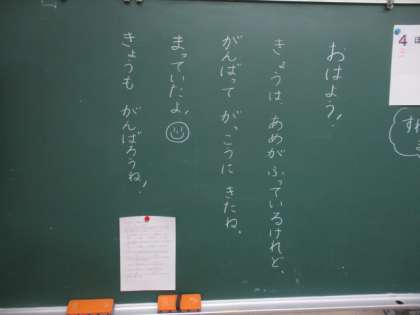 おはよう!
きょうは、あめがふっているけれど、
がんばって がっこうに きたね。
まっていたよ!
きょうも がんばろうね!
4